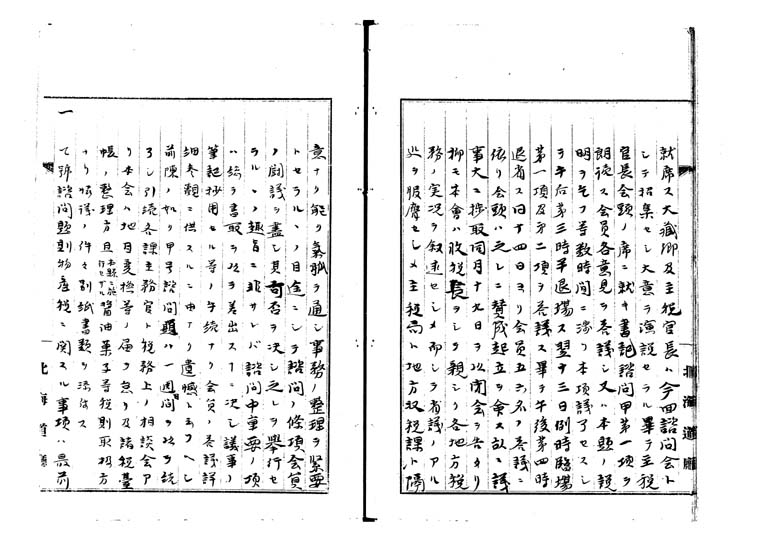 就席ス大藏卿及主税官長ハ今回諮問会ト
シテ招集セシ大意ヲ演説セラル畢テ主税
官長会頭ノ席ニ就キ書記諮問甲第一項ヲ
朗読ス会員各意見ヲ答議シ又ハ本題ノ説
明ヲ乞フ等数時間ニ渉リ本項議了セスシ
テ午后第三時半退場ス翌十三日例時臨場
第一項及第二項ヲ答議ス畢テ午後第四時
退省ス日十四日ヨリ会員五六名ノ答議ニ
依リ会頭ハ之レニ賛成起立ノ会又ハ議
事大ニ捗取同月十九日ヲ以閉会ヲ告タリ
抑モ本會ハ收税長ヲシテ親シク各地方税
務ノ実況ヲ叙述セシメ而シテ省議ノアル
所ヲ服膺セシメ主税局ト地方收税課ト隔
意ナク能ク氣脈ヲ通シ事務ノ整理ヲ緊要
トセラルヽノ目途ニシテ諮問ノ條項会員
ノ討議ヲ盡シ其可否ヲ決シ之レヲ舉行セ
ラルヽノ趣旨ニ非サレバ諮問中重要ノ項
ハ総テ書取ヲ以テ差出スニ決シ議事ノ
筆記抄用セル等ノ手続ナリ会員ノ答議詳
細参観ニ供スルニ由ナク遺憾ト云フヘシ
前陳ノ如ク甲号諮問題ハ一週間ヲ以テ結
了シ引続各課主務官ト税務上ノ相談会ア
リ本会ハ地目変換等ノ届ケ怠リ及諸税臺
帳ノ整理方且醤油菓子等税則取扱方
ナリ協議ノ件々別紙書類ノ満ス
一 て號諮問題則物産税ニ関スル事項ハ最前
北海道廳
北海道廳